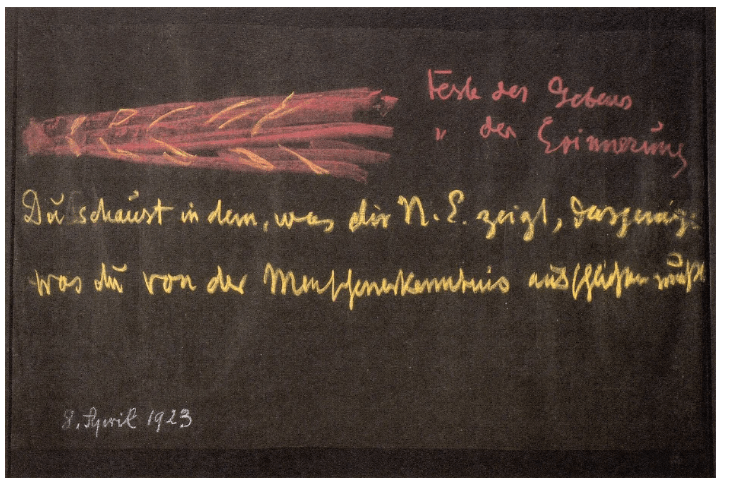 Feste des Gebens
" der Erinnerung
Du schaust in dem, was dir N. E. zeigt, dasjenige
was du von der Menschenerkenntnis ausschließen mußt
8. April 1923